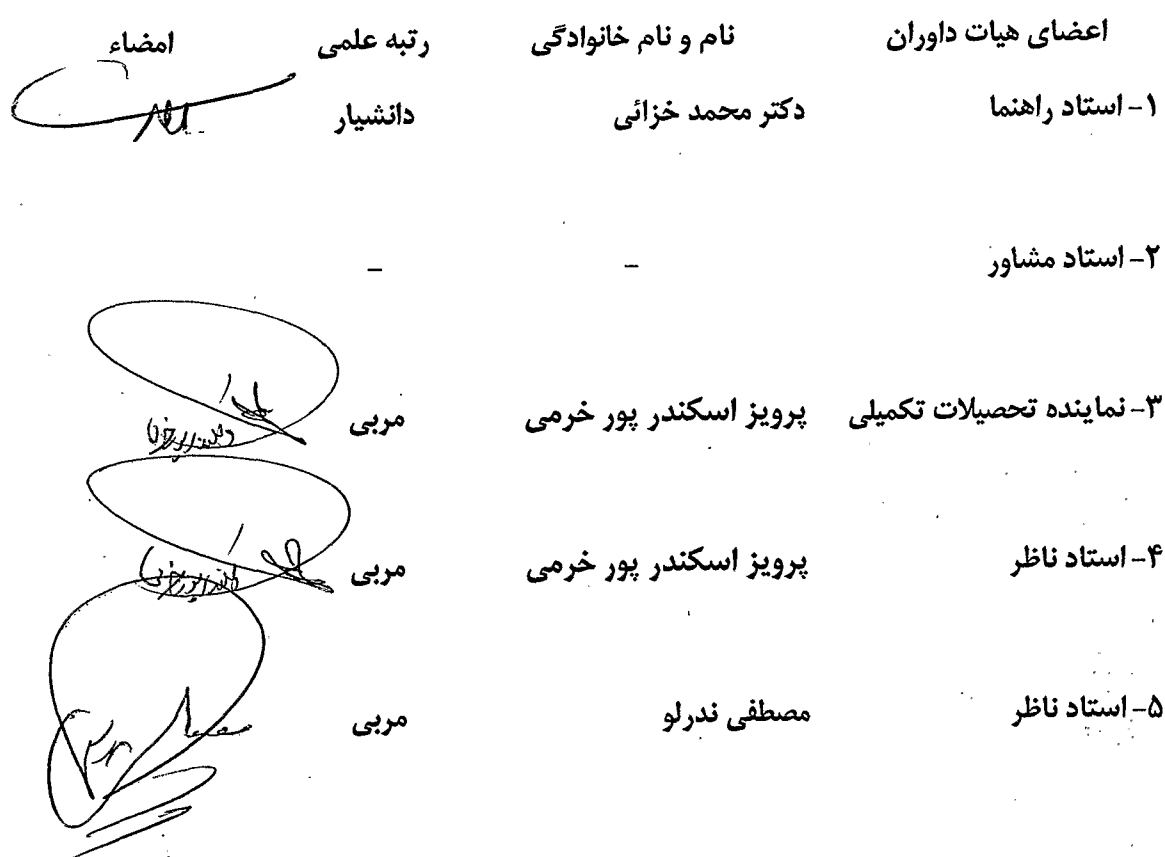 اعضای هیات داوران نام و نام خانوادگی رتبه علمی امضاء
۱- استاد راهنما دکتر محمد خزائی دانشیار
۲- استاد مشاور - -
۳- نماینده تحصیلات تکمیلی پرویز اسکندر پور خرمی مربی
۴- استاد ناظر پرویز اسکندر پور خرمی مربی
۵- استاد ناظر مصطفی ندرلو مربی